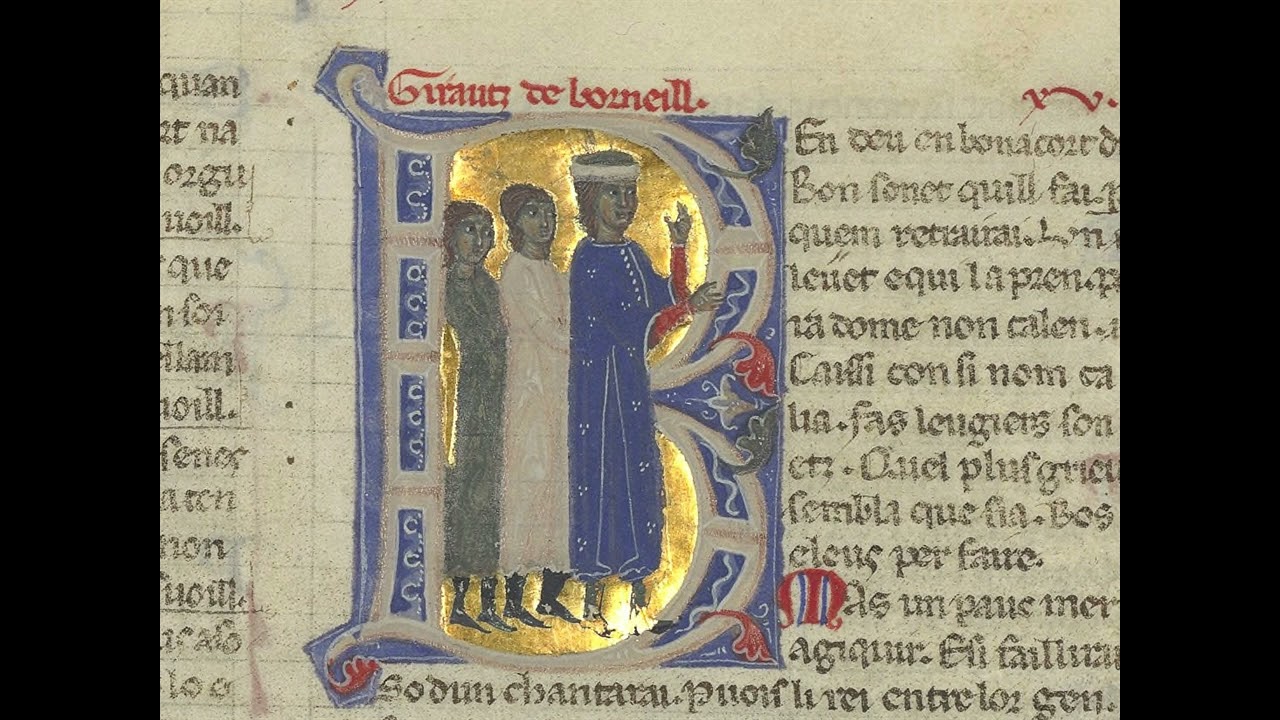 quan
rt na
orgu
uoill.
que
n sor
uoill.
senes
a ten
non
uoill.
lo
Girautz de borneill.
xv.
En deu en bonacort d
Bon sonet quill fai. p
quem retrairai. Lon
leuet e qui la pren. p
na dome non calen.
Caissi con si nom ca
lia. fas leugiers son
etz. Quel plus grieu
sembla que sia. Bos
e leus per faire.
Mas un pauc mer
agiquir. E si faillirai
So dun chantarai. Puois li rei entre lor gen.